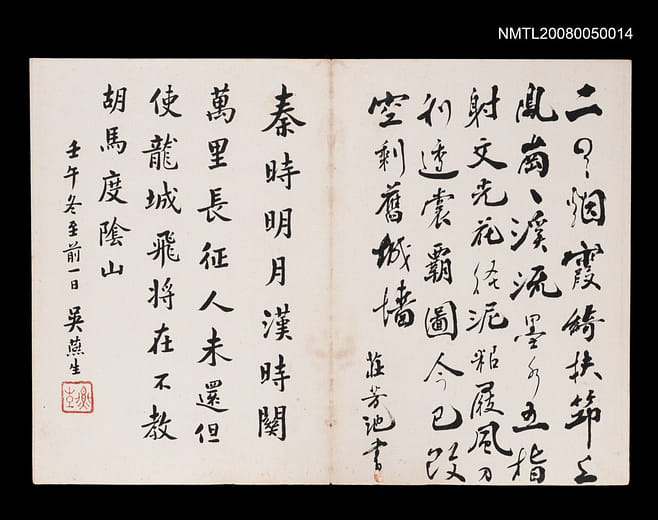 NMTL20080050014
二月烟霞綺扶筇上
鳳崗、溪流墨水五指
射文光花徑泥粘屐風刀
利透裳霸圖今已改
空剩舊城墻
莊芳池書
秦時明月漢時關
萬里長征人未還但
使龍城飛將在不教
胡馬度陰山
壬午冬至前一日 吳燕生